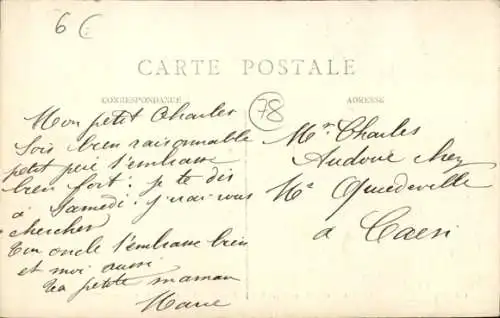 6
CARTE POSTALE
CORRESPONDANCE
78
ADRESSE
Mon petit Charles
Sois bien raisonnable
petit père t'embrasse
bien fort. je te dis
à Samedi. j'irai vous
chercher
Ton oncle t'embrasse bien
et moi aussi
ta petite maman
Marie
Mr Charles
Audoue chez
Me Queudeville
à Caen